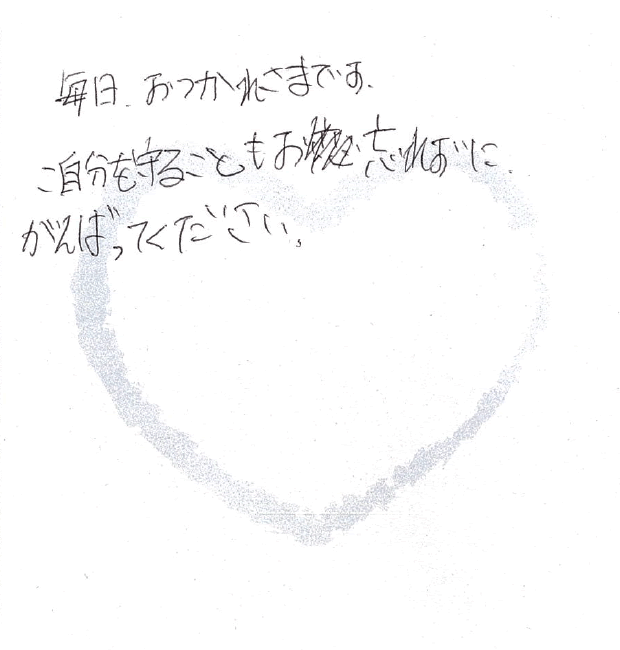 毎日、おつかれさまです。
ご自分を守ることもお忘れずに、
がんばってください。